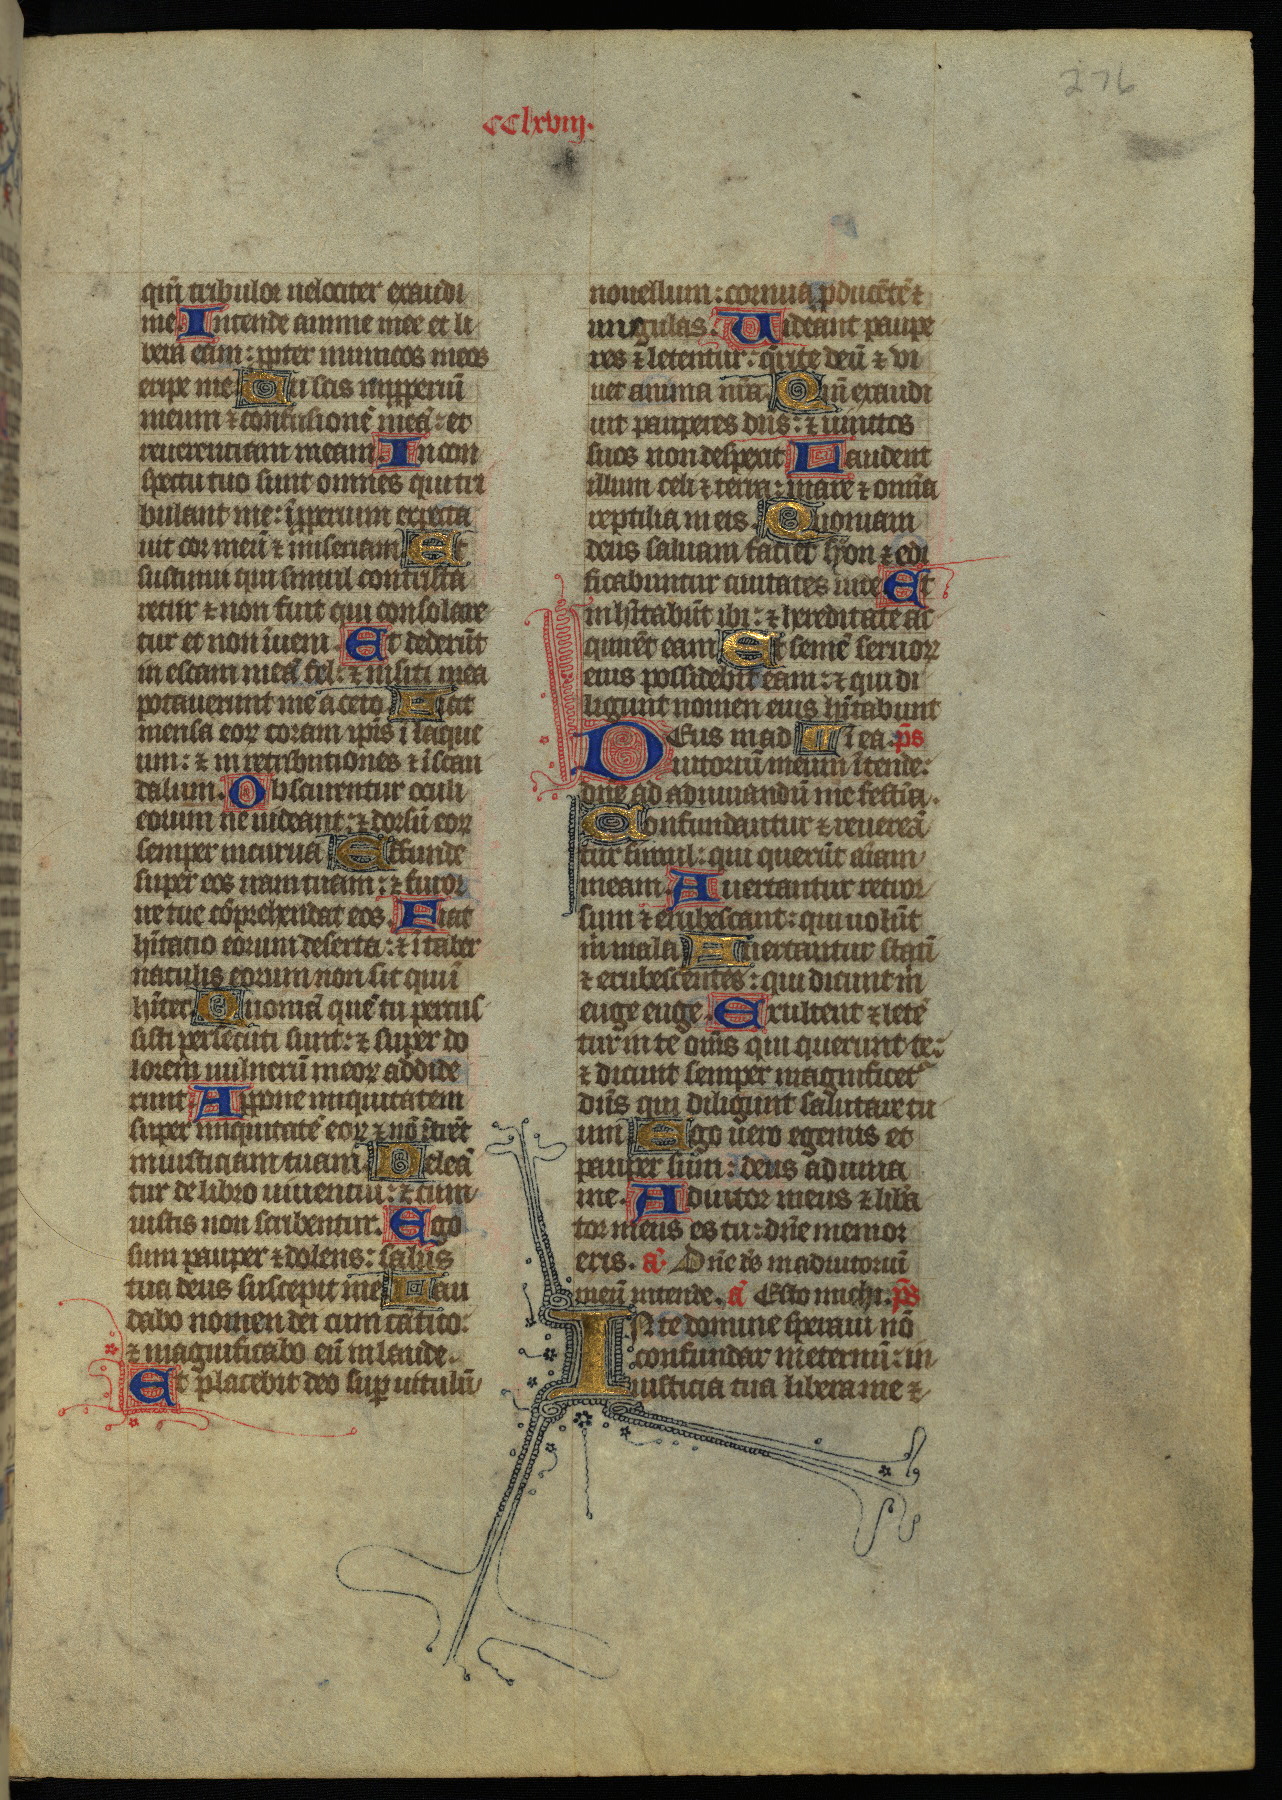 276
CClxviij.
qm̄ tribulor uelociter exaudi
me Intende anime mee et li
bera eam: ꝓpter inimicos meos
eripe me Qui scis imꝓperiū
meum ⁊ confusionē meā: et
reuerentiam meam. In con
spectu tuo sunt omnes qui tri
bulant me: īꝓperium expecta
uit cor meū ⁊ miseriam Et
sustinui qui simul contrista
retur ⁊ non fuit qui consolare
tur et non īueni. Et dederūt
in escam meā fel: ⁊ in siti mea
potauerunt me aceto Fiat
mensa eoꝝ coram ipīs ī laque
um: ⁊ in retributiones ⁊ ī scan
dalum. Obscurentur oculi
eorum ne uideant: ⁊ dorsū eoꝝ
semper incurua Effunde
super eos iram tuam: ⁊ furor
ire tue cōprehendat eos. Fiat
hītatio eorum deserta: ⁊ ī taber
naculis eorum non sit qui ī
hītet Quoniā quē tu percus
sisti persecuti sunt: ⁊ super do
lorem uulnerū meoꝝ addide
runt Appone iniquitatem
super iniquitatē eoꝝ ⁊ nō ītrēt
in iusticiam tuam Deleā
tur de libro uiuentiū: ⁊ cum
iustis non scribentur. Ego
sum pauper ⁊ dolens: salus
tua deus suscepit me Lau
dabo nomen dei cum cātico:
⁊ magnificabo eū in laude.
Et placebit deo sup̄ uitulū
nouellum: cornua ꝓducētē ⁊
ungulas. Uideant paupe
res ⁊ letentur: q̄rite deū ⁊ vi
uet anima nr̄a. Qm̄ exaudi
uit pauperes dn̄s: ⁊ uinctos
suos non despexit Laudent
illum celi ⁊ terra: mare ⁊ omīa
reptilia in eis. Quoniam
deus saluam faciet syon ⁊ edi
ficabuntur ciuitates iude Et
inhītabūt ibi: ⁊ hereditate ac
quirēt eam Et semē seruoꝝ
eius possidebit eam: ⁊ qui di
ligunt nomen eius hītabunt
DEus in ad ī ea. p̄s
iutoriū meum ītende:
dn̄e ad adiuuandū me festīa.
Confundantur ⁊ reuereā
tur simul: qui querūt aīam
meam. Auertantur retror
sum ⁊ erubescant: qui uolūt
m̄ mala Auertantur statī
⁊ erubescentes: qui dicunt m̄
euge euge. Exultent ⁊ lete
tur in te om̄s qui querunt te:
⁊ dicant semper magnificet᷑
dn̄s qui diligunt salutare tu
um Ego uero egenus et
pauper sum: deus adiuua
me. Adiutor meus ⁊ libā
tor meus es tu: dn̄e ne mor
eris. a᷑. Dn̄e d̄s in adiutoriū
meū intende. a᷑ Esto michi. p̄s
IN te domine speraui nō
confundar in eternū: in
iusticia tua libera me ⁊